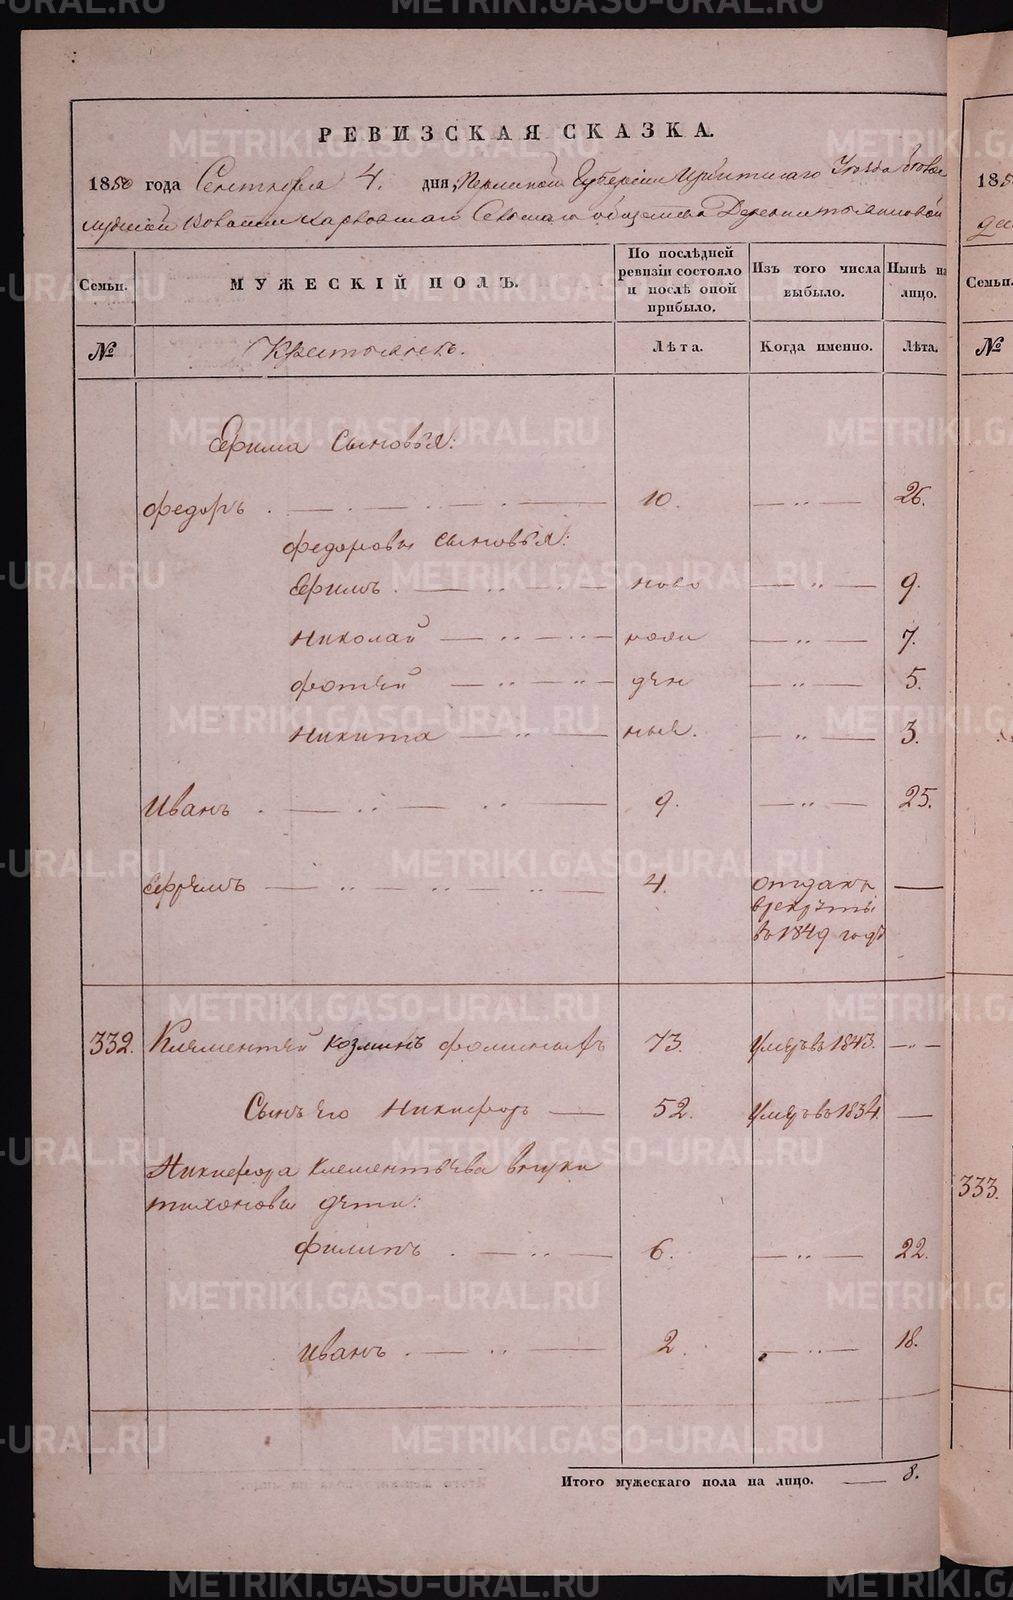 РЕВИЗСКАЯ СКАЗКА.
1850 года Сентября 4. дня, Пермской Губернии Ирбитскаго Уезда
волости Харловскаго Сельскаго общества Деревни
Семьи. МУЖЕСКІЙ ПОЛЪ. По послѣдней ревизіи состояло и послѣ оной прибыло. Изъ того числа выбыло. Нынѣ на лицо.
№ Крестьянъ. Лѣта. Когда именно. Лѣта.
Ефима сыновья:
Федоръ 10. 26.
Федоровы сыновья:
Ефимъ ново 9.
Николай рож 7.
Фотей ден 5.
Никита ныя. 3.
Иванъ 9. 25.
Ефремъ 4. отданъ
в рекруты
въ 1849 годѣ
332. Клементей Козминъ Фоминыхъ 73. умеръ въ 1843.
Сынъ его Никифоръ 52. умеръ въ 1834.
Никифора Клементьева внуки
Тихоновы дети:
Филипъ 6. 22.
Иванъ 2. 18.
Итого мужескаго пола на лицо. 8.
185
Семьи.
№
333.
METRIKI.GASO-URAL.RU